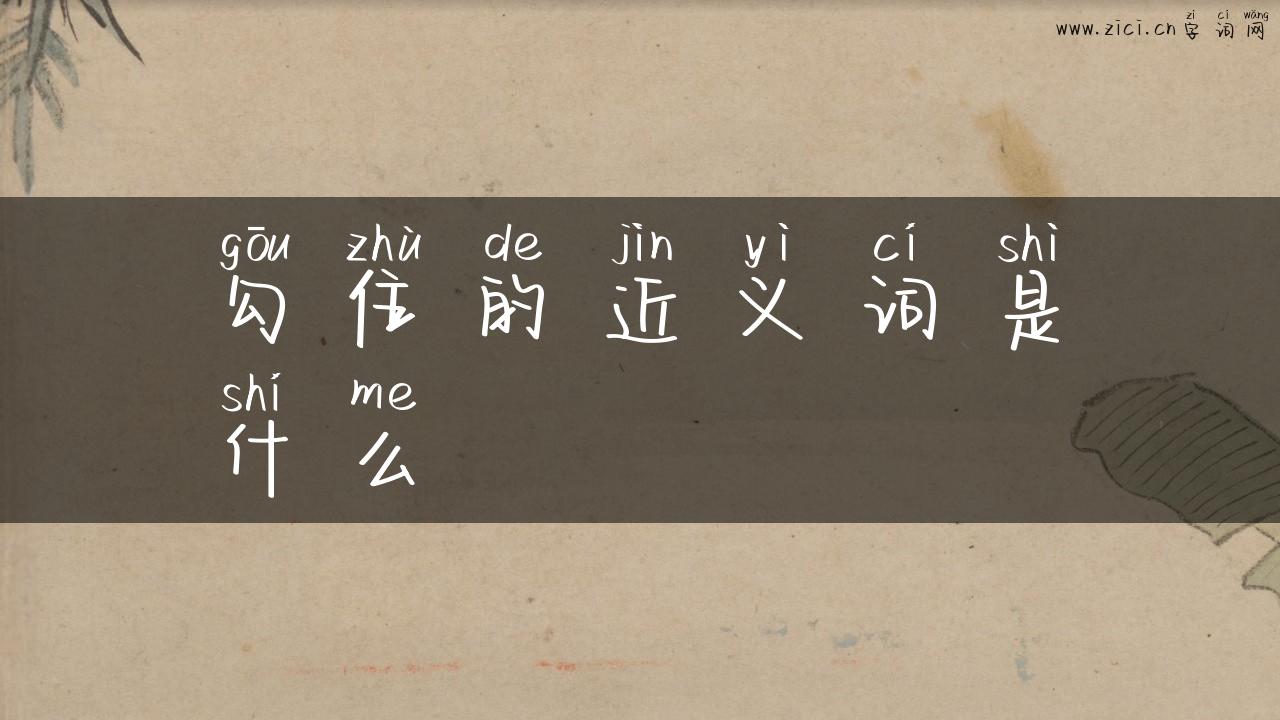 zì cí wǎng
www.zici.cn 字 词 网
gōu zhù de jìn yì cí shì
勾 住 的 近 义 词 是
shí me
什 么